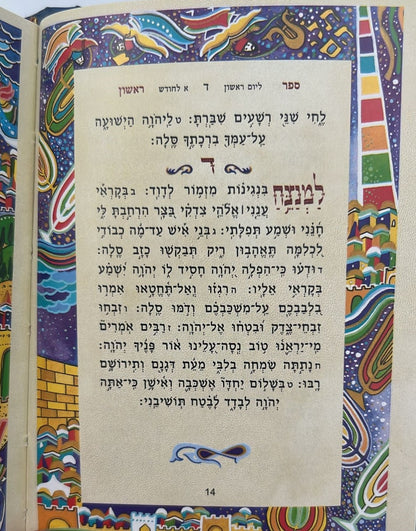 ספר ליום ראשון ד א לחודש ראשון
לֶ֑חִי שִׁנֵּ֖י רְשָׁעִ֣ים שִׁבַּֽרְתָּ׃ ט לַיהֹוָ֥ה הַיְשׁוּעָ֑ה
עַֽל־עַמְּךָ֖ בִרְכָתֶ֣ךָ סֶּֽלָה׃
ד
לַמְנַצֵּ֥חַ בִּנְגִינ֗וֹת מִזְמ֥וֹר לְדָוִֽד׃ ב בְּקׇרְאִ֡י
עֲנֵ֤נִי ׀ אֱלֹ֘הֵ֤י צִדְקִ֗י בַּ֭צָּר הִרְחַ֣בְתָּ לִּ֑י
חׇ֝נֵּ֗נִי וּשְׁמַ֥ע תְּפִלָּתִֽי׃ ג בְּנֵ֥י אִ֡ישׁ עַד־מֶ֬ה כְבוֹדִ֣י
לִ֭כְלִמָּה תֶּאֱהָב֣וּן רִ֑יק תְּבַקְשׁ֖וּ כָזָ֣ב סֶֽלָה׃
ד וּדְע֗וּ כִּֽי־הִפְלָ֣ה יְ֭הֹוָה חָסִ֣יד ל֑וֹ יְהֹוָ֥ה יִ֝שְׁמַ֗ע
בְּקׇרְאִ֥י אֵלָֽיו׃ ה רִגְז֗וּ וְֽאַל־תֶּ֫חֱטָ֥אוּ אִמְר֣וּ
בִ֭לְבַבְכֶם עַֽל־מִשְׁכַּבְכֶ֗ם וְדֹ֣מּוּ סֶֽלָה׃ ו זִבְח֥וּ
זִבְחֵי־צֶ֑דֶק וּ֝בִטְח֗וּ אֶל־יְהֹוָֽה׃ ז רַבִּ֥ים אֹמְרִים֮
מִֽי־יַרְאֵ֢נ֫וּ ט֥וֹב נְֽסָה־עָ֭לֵינוּ א֨וֹר פָּנֶ֬יךָ יְהֹוָֽה׃
ח נָתַ֣תָּה שִׂמְחָ֣ה בְלִבִּ֑י מֵעֵ֬ת דְּגָנָ֖ם וְתִֽירוֹשָׁ֣ם
רָֽבּוּ׃ ט בְּשָׁל֣וֹם יַחְדָּו֮ אֶשְׁכְּבָ֢ה וְאִ֫ישָׁ֥ן כִּֽי־אַתָּ֣ה
יְהֹוָ֣ה לְבָדָ֑ד לָ֝בֶ֗טַח תּוֹשִׁיבֵֽנִי׃
14